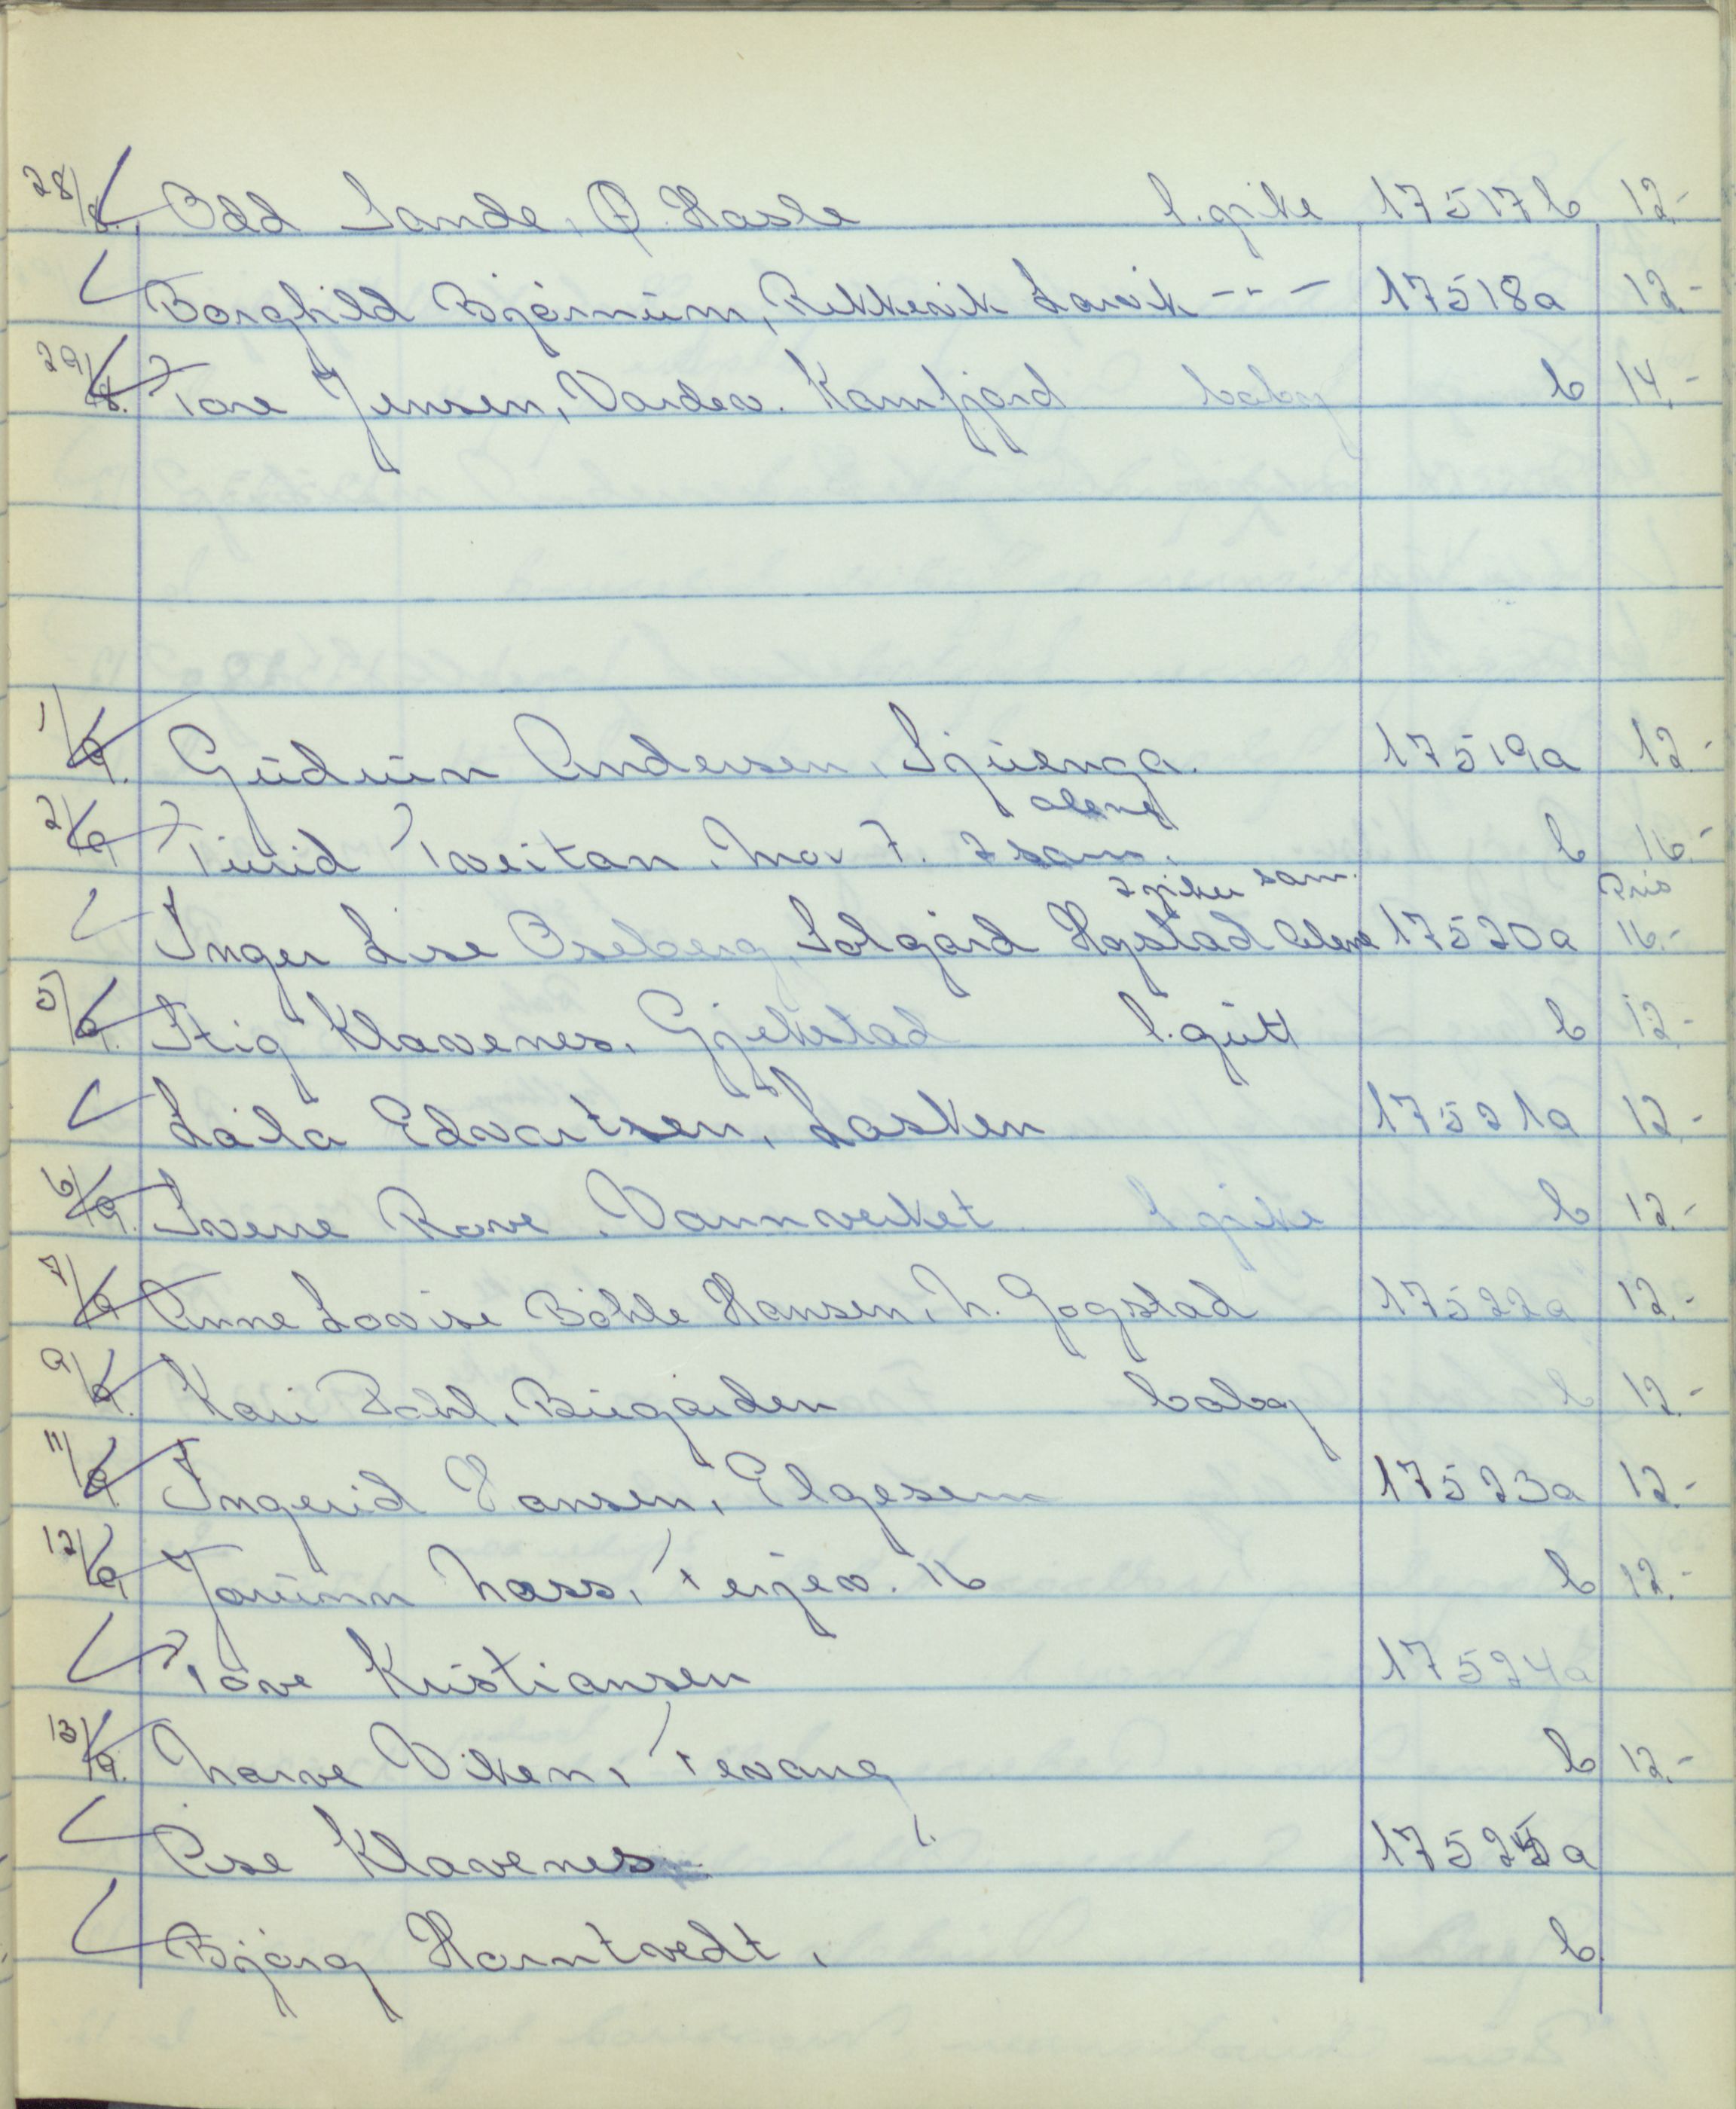 28/8. Odd Sande, Ø. Hasle l. pike 17517b 12.-
Borghild Bjørnum, Rekkevik Larvik -"- 17518a 12.-
29/8. Tore Jensen, Vardev. Kamfjord baby b 14.-
1/9. Gudrun Andersen, Sjuenga. 17519a 12.-
alene
2/9 Turid Tveitan, Mov 7. 2 sam. b 16.-
2 piker sam. Pris
Inger Lise Oseberg, Solgård Hystad Alene 17520a 16.-
5/9. Stig Klavenes, Gjekstad l. gutt b 12.-
Laila Edvartsen, Lasken 17521a 12.-
6/9. Sverre Rove, Vannverket l. pike b 12.-
7/9 Anne Lovise Bøhle Hansen, N. Gogstad 17522a 12.-
9/9. Kari Dahl, Bugården baby b 12.-
11/9. Ingerid Hansen, Elgesem 17523a 12.-
12/9, Jorunn Næss, Terjev. 16 b 12.-
Tove Kristiansen 17524a
13/9. Narve Viken, Tevang b 12.-
Åse Klavenes. 17525a
Bjørg Horntvedt, b.